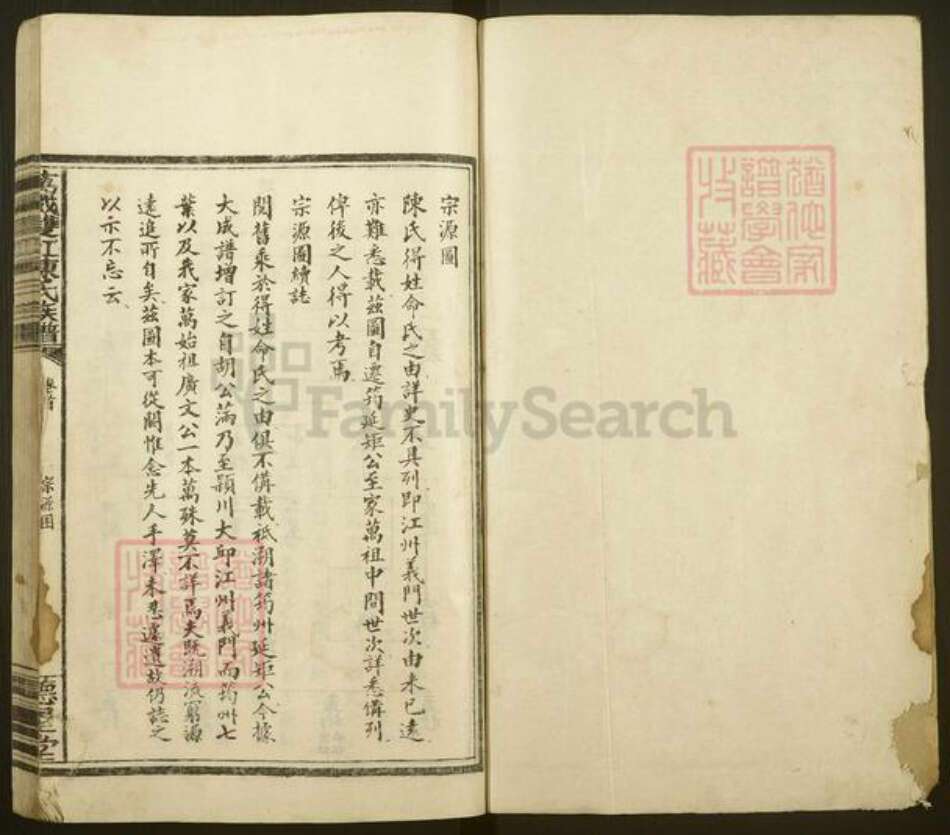 宗源圖
陳氏得姓命氏之由詳史不具列即江州義門世次由來已遠
亦難悉載茲圖自遷筠延矩公至家萬祖中間世次詳悉備列
俾後之人得以考焉
宗源圖續誌
閱舊乘於得姓命氏之由俱不備載祗溯諸筠州延矩公今據
大成譜增訂之自胡公滿乃至潁川大邱江州義門而筠州七
葉以及我家萬始祖廣文公一本萬殊莫不詳焉夫既溯流窮源
遠追所自矣茲圖本可從闕惟念先人手澤未忍遽遺故仍誌之
以示不忘云
雙江陳氏族譜
卷首
宗源圖
德星堂
譜學會
收藏
FamilySearch